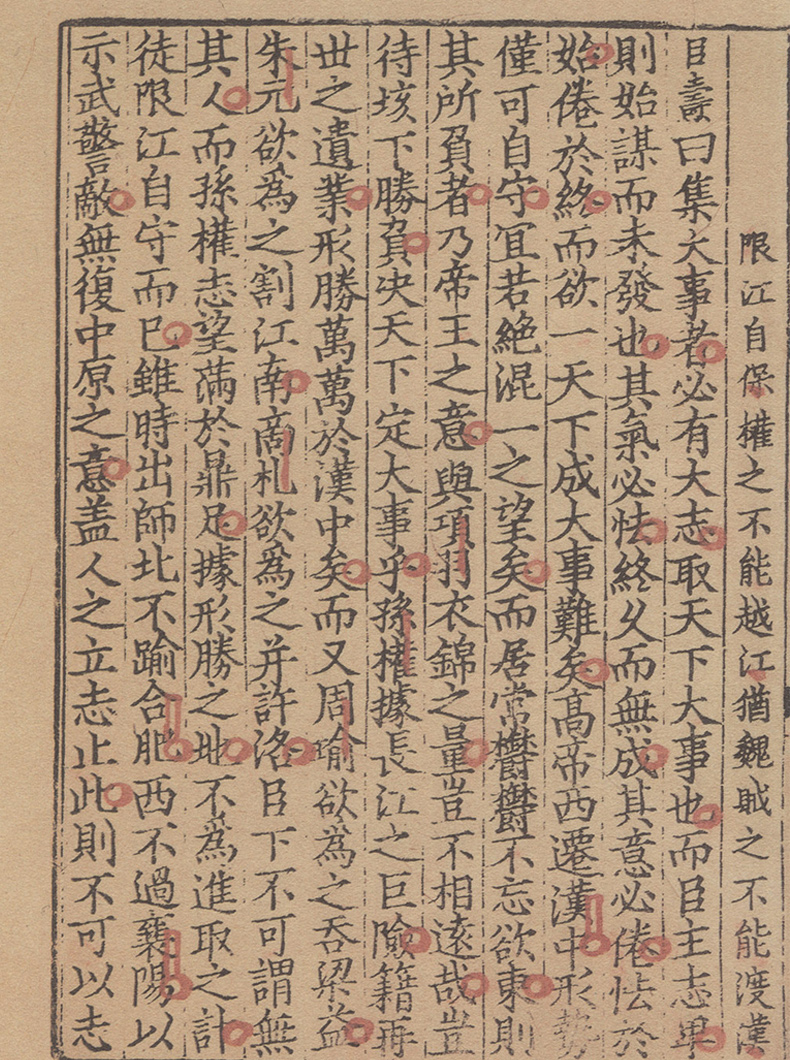 限江自保權之不能越江猶魏賊之不能渡漢
臣壽曰集大事者必有大志取天下大事也而臣主志卑
則始謀而未發也其氣必怯終久而無成其意必倦怯於
始倦於終而欲一天下成大事難矣高帝西遷漢中形勢
僅可自守冝若絶混一之望矣而居常鬱鬱不忘欲東則
其所負者乃帝王之意與項羽衣錦之量豈不相逺哉豈
待垓下勝負决天下定大事乎孫權據長江之巨險籍再
世之遺業形勝萬萬於漢中矣而又周瑜欲爲之吞梁益
朱元欲爲之割江南啇札欲爲之并許洛臣下不可謂無
其人而孫權志望滿於鼎足據形勝之地不爲進取之計
徒限江自守而已雖時出師北不踰合肥西不過襄陽以
示武警敵無復中原之意盖人之立志止此則不可以志